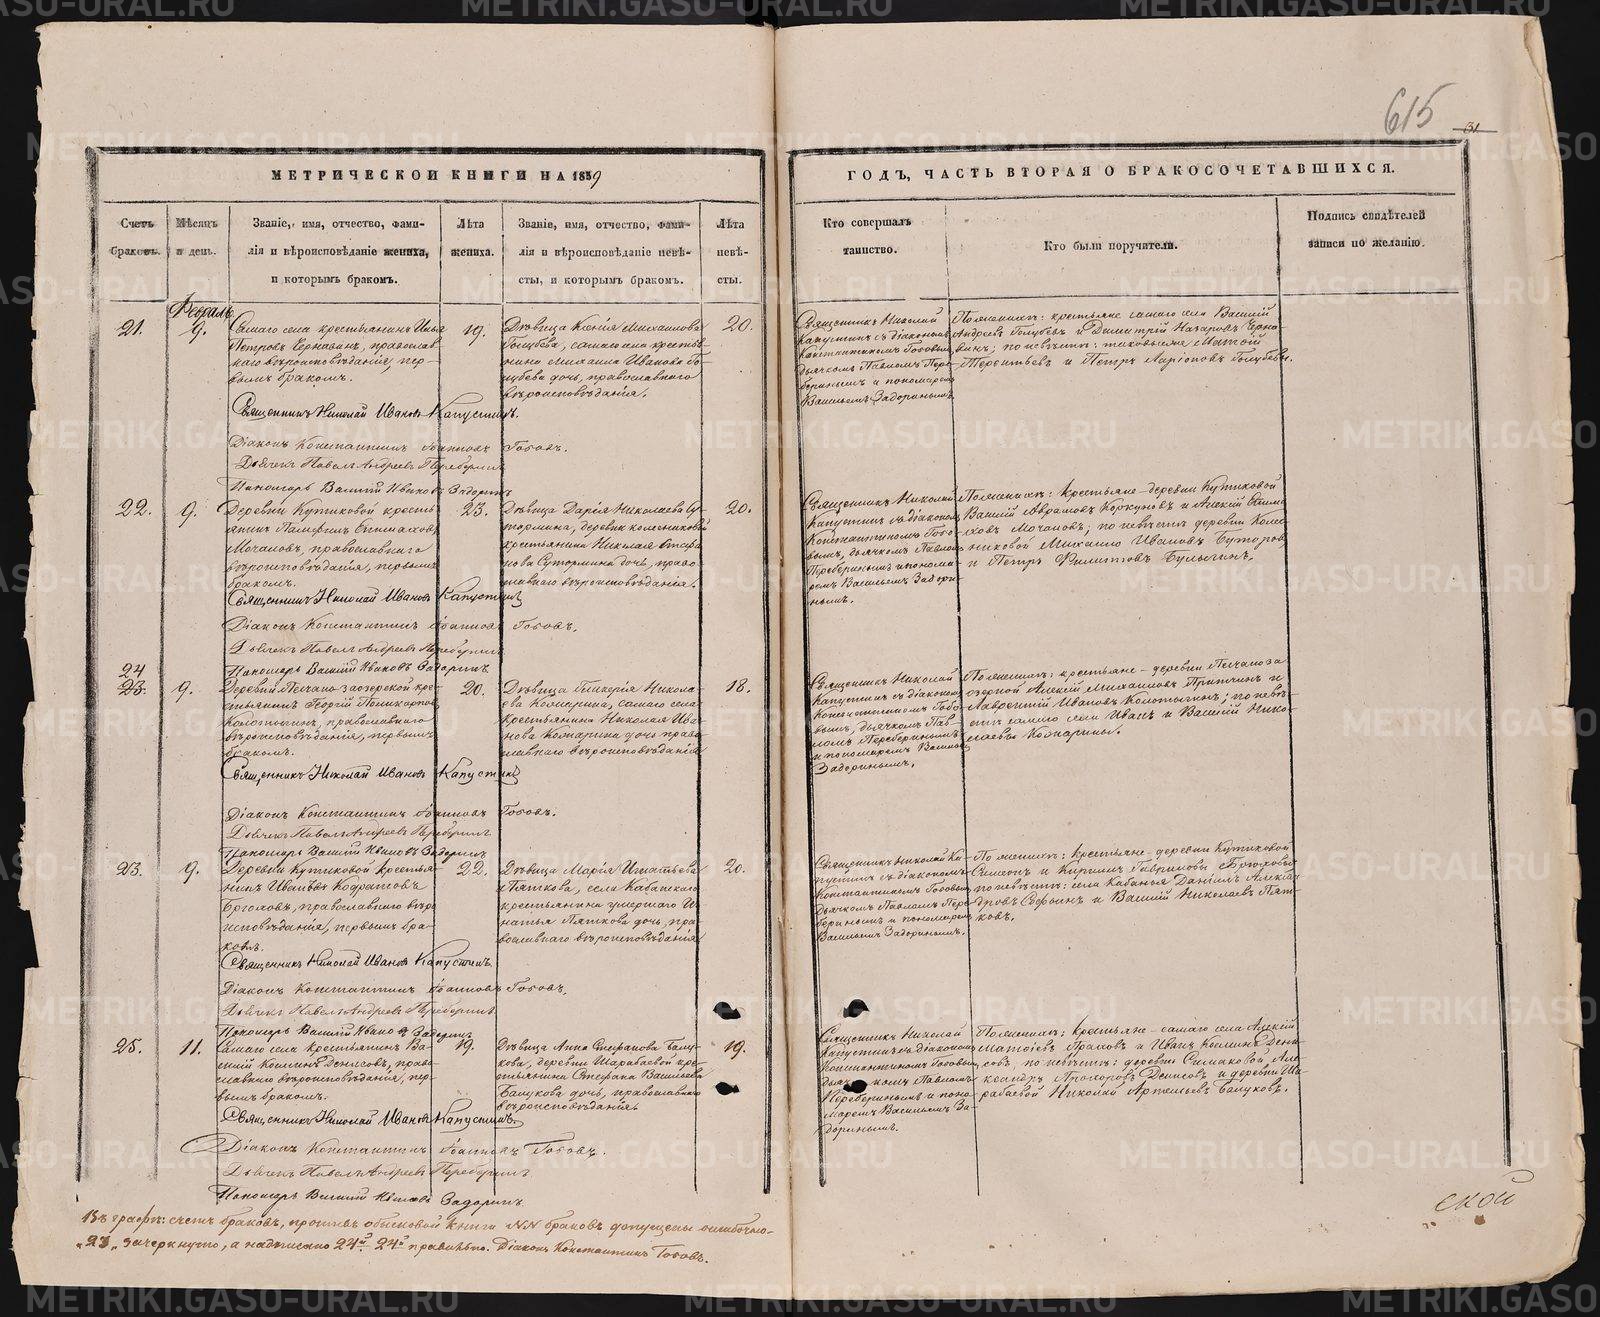 615
31
МЕТРИЧЕСКОЙ КНИГИ НА 1859
ГОДЪ, ЧАСТЬ ВТОРАЯ О БРАКОСОЧЕТАВШИХСЯ.
Счетъ браковъ.
Мѣсяцъ и день.
Званіе, имя, отчество, фами-
лія и вѣроисповѣданіе жениха,
и которымъ бракомъ.
Лѣта
жениха.
Званіе, имя, отчество, фами-
лія и вѣроисповѣданіе невѣ-
сты, и которымъ бракомъ.
Лѣта
невѣ-
сты.
Кто совершалъ
таинство.
Кто были поручители.
Подпись свидѣтелей
записи по желанію.
Февраль
21.
9.
Самаго села крестьянинъ Илья
Петровъ Чернавинъ, православ
наго вѣроисповѣданія, пер-
вымъ бракомъ.
19.
Дѣвица Ксенія Михаилова
Голубева, самаго села крестья
нина Михаила Иванова Го
лубева дочь, православнаго
вѣроисповѣданія.
20.
Священникъ Николай
Капустинъ съ діакономъ
Константиномъ Гововымъ,
дьячкомъ Павломъ Пере-
беринымъ и пономаремъ
Васильемъ Задоринымъ.
По женихѣ: крестьяне самаго села Василій
Андреевъ Голубевъ и Димитрій Назаровъ Черна
винъ; по невѣстѣ: таковыеже Матѳій
Терентьевъ и Петръ Ларіоновъ Голубевы.
Священникъ Николай Ивановъ Капустинъ.
Діаконъ Константинъ Іоанновъ Гововъ.
Дьячекъ Павелъ Андреевъ Переберинъ
Пономарь Василій Ивановъ Задоринъ
22.
9.
Деревни Кутиковой кресть
янинъ Памфилъ
Мочаловъ, православнаго
вѣроисповѣданія, первымъ
бракомъ.
23.
Дѣвица Дарія Николаева Су-
тормина, деревни Колесниковой
крестьянина Николая
Сутормина дочь, право
славнаго вѣроисповѣданія.
20.
Священникъ Николай
Капустинъ съ діакономъ
Константиномъ Гово
вымъ, дьячкомъ Павломъ
Переберинымъ и понома-
ремъ Васильемъ Задори-
нымъ.
По женихѣ: крестьяне – деревни Кутиковой
Василій Аврамовъ Коркуновъ и Алексій
Мочаловъ; по невѣстѣ деревни Колес
никовой Михаило Ивановъ
и Петръ Филиповъ Булыгинъ.
Священникъ Николай Ивановъ Капустинъ
Діаконъ Константинъ Іоанновъ Гововъ.
Дьячекъ Павелъ Андреевъ Переберинъ
Пономарь Василій Ивановъ Задоринъ
24
23.
9.
Деревни Песчано заозерской кре-
стьянинъ Георгій Поликарповъ
Колотыгинъ, православнаго
вѣроисповѣданія, первымъ
бракомъ.
20.
Дѣвица Гликерія Никола-
ева Комарина, самаго села
крестьянина Николая Ива
нова Комарина дочь право
славнаго вѣроисповѣданія
18.
Священникъ Николай
Капустинъ съ діакономъ
Константиномъ Гово
вымъ, дьячкомъ Пав
ломъ Переберинымъ
и пономаремъ Васильемъ
Задоринымъ.
По женихѣ: крестьяне – деревни Песчано за
озерной Алексій Михаиловъ и
Лаврентій Ивановъ Колотыгинъ; по невѣ-
стѣ самаго села Иванъ и Василій Нико-
лаевы Комарины.
Священникъ Николай Ивановъ Капустинъ
Діаконъ Константинъ Іоанновъ Гововъ.
Дьячекъ Павелъ Андреевъ Переберинъ
Пономарь Василій Ивановъ Задоринъ
23.
9.
Деревни Кутиковой крестья-
нинъ Кодратовъ
православнаго вѣро
исповѣданія, первымъ бра-
комъ.
22.
Дѣвица Марія Игнатьева
Пяткова, села Кабанскаго
крестьянина умершаго Иг
натья Пяткова дочь, пра-
вославнаго вѣроисповѣданія
20.
Священникъ Николай Ка-
пустинъ съ діакономъ
Константиномъ Гововымъ
дьячкомъ Павломъ Пере
беринымъ и пономаремъ
Васильемъ Задоринымъ.
По женихѣ: крестьяне – деревни Кутиковой
Симеонъ и Кирилъ Гавриловы Брюховы
по невѣстѣ: села Кабанья Даніилъ
и Василій Николаевъ Пят-
ковъ.
Священникъ Николай Ивановъ Капустинъ.
Діаконъ Константинъ Іоанновъ Гововъ.
Дьячекъ Павелъ Андреевъ Переберинъ
Пономарь Василій Ивановъ Задоринъ
25.
11.
Самаго села крестьянинъ Ва-
силій Козминъ Денисовъ, право
славнаго вѣроисповѣданія, пер-
вымъ бракомъ.
19.
Дѣвица Анна Стефанова Балу-
кова, деревни Шарабаевой кре-
стьянина Стефана Васильева
Балукова дочь, православнаго
вѣроисповѣданія.
19.
Священникъ Николай
Капустинъ съ діакономъ
Константиномъ Гововымъ
дьячкомъ Павломъ
Переберинымъ и поно-
маремъ Васильемъ За-
доринымъ.
По женихѣ: крестьяне – самаго села Алексій
Матѳіевъ и Иванъ Козминъ Дени
совъ, по невѣстѣ: деревни Симаковой Але-
ксандръ Прохоровъ Денисовъ и деревни Ша-
рабаевой Николай Артемьевъ Балуковъ.
Священникъ Николай Ивановъ Капустинъ.
Діаконъ Константинъ Іоанновъ Гововъ.
Дьячекъ Павелъ Андреевъ Переберинъ
Пономарь Василій Ивановъ Задоринъ
Въ графѣ: счетъ браковъ, противъ обысковой книги NN браковъ допущены ошибочно-
„23„ зачеркнуто, а надписано 24й 24й правильно. Діаконъ Константинъ Гововъ.
ской
METRIKI.GASO-URAL.RU